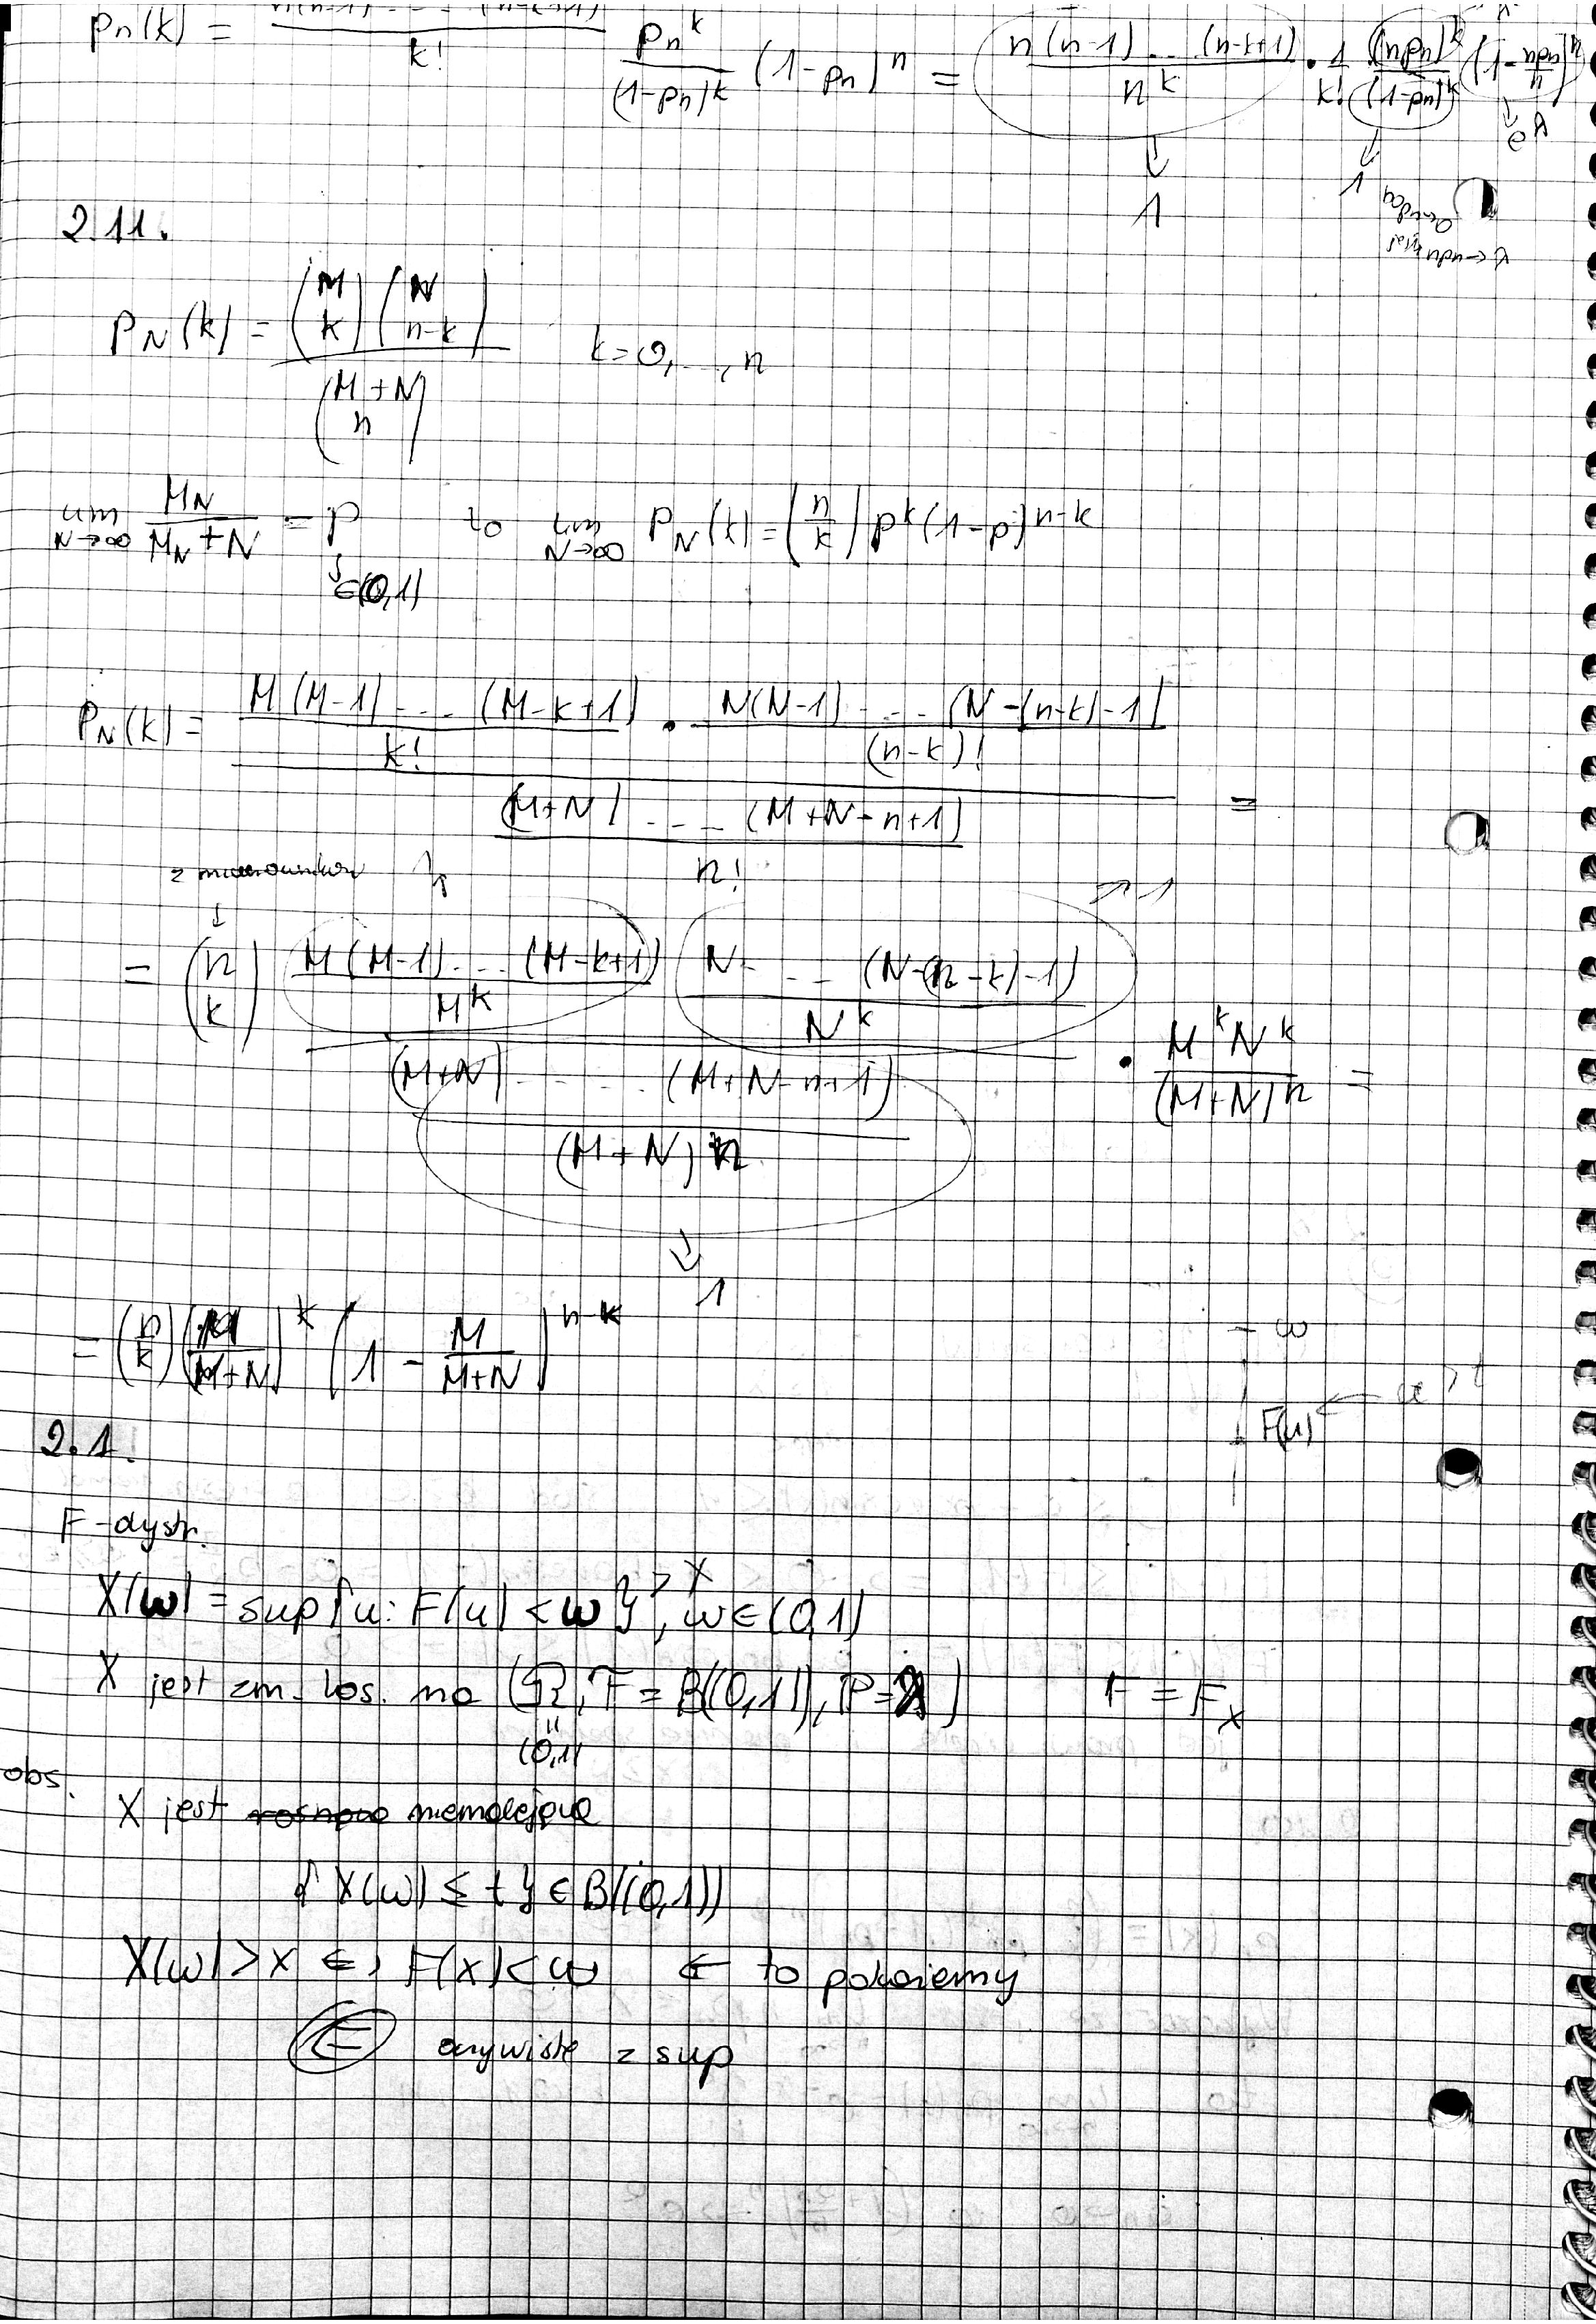 pn(k) = n(n-1)... (n-k+1) / k! pn^k / (1-pn)^k (1-pn)^n = n(n-1)... (n-k+1) / n^k · 1/k! (npn)^k / (1-pn)^k (1 - npn/n)^n
↓ 1
↓ 1
2.11.
PN(k) = (M k)(N n-k) / (M+N n) k=0,...,n
lim N→∞ MN / MN+N = p to lim N→∞ PN(k) = (n k) p^k (1-p)^n-k
∈(0,1)
PN(k) = M(M-1)... (M-k+1) / k! · N(N-1)... (N-(n-k)-1) / (n-k)! / (M+N)... (M+N-n+1) / n! =
z mianowników
↗ 1
= (n k) M(M-1)... (M-k+1) / M^k N... (N-(n-k)-1) / N^k / (M+N)... (M+N-n+1) / (M+N)^n · M^k N^k / (M+N)^n =
↓ 1
= (n k) (M / M+N)^k (1 - M / M+N)^n-k
ω
F(u) ← u > t
2.1.
F-dystr.
X(ω) = sup{u: F(u) < ω}, ω∈(0,1)
> x
X jest zm. los. na (Ω, F = B((0,1)), P=λ) F = Fx
(0,1)
obs.
X jest niemalejąca
{X(ω) ≤ t} ∈ B((0,1))
X(ω) > x ⇔ F(x) < ω ← to pokażemy
⇐ oczywiste z sup